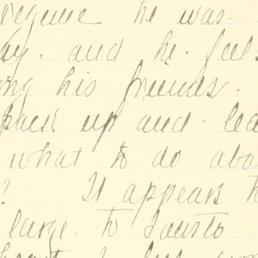 he was
and he feels
his friends.
pack up and lea
what to do abo
? It appears th
large. to Fausto